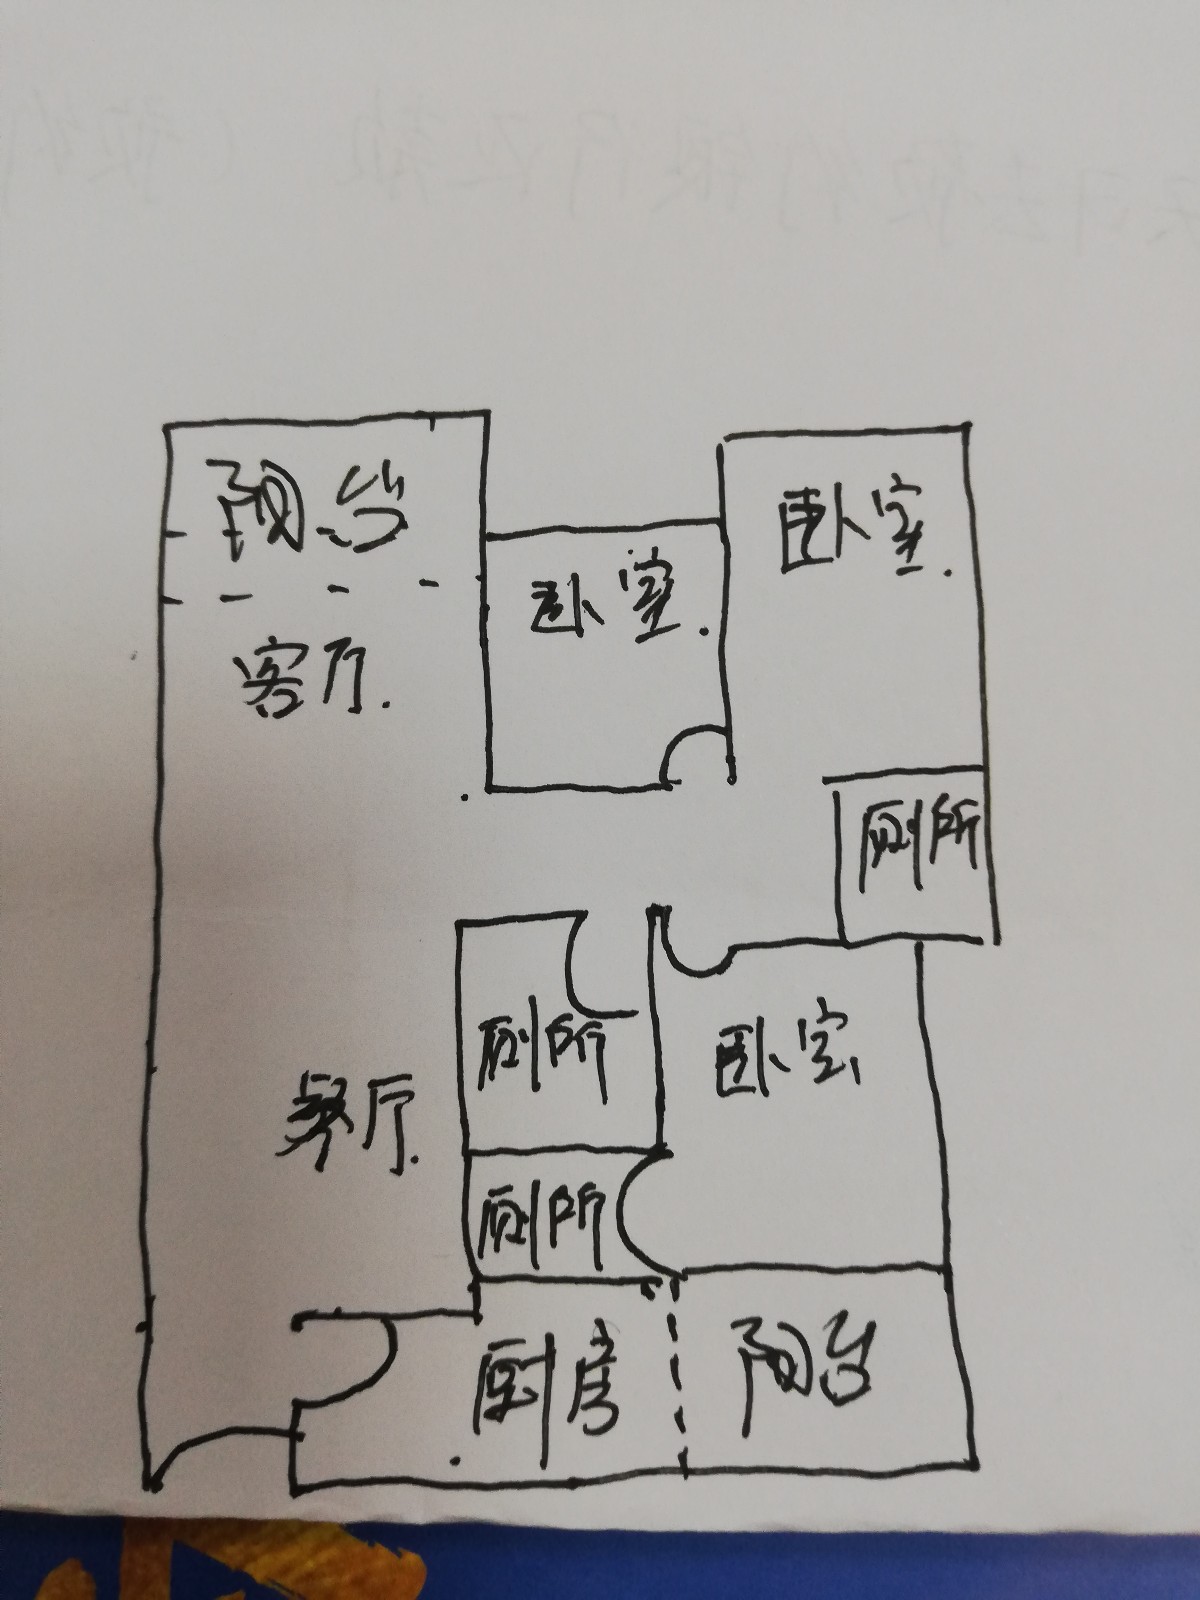 阳台
卧室
卧室.
客厅.
厕所
厕所
卧室
餐厅.
厕所
厨房
阳台